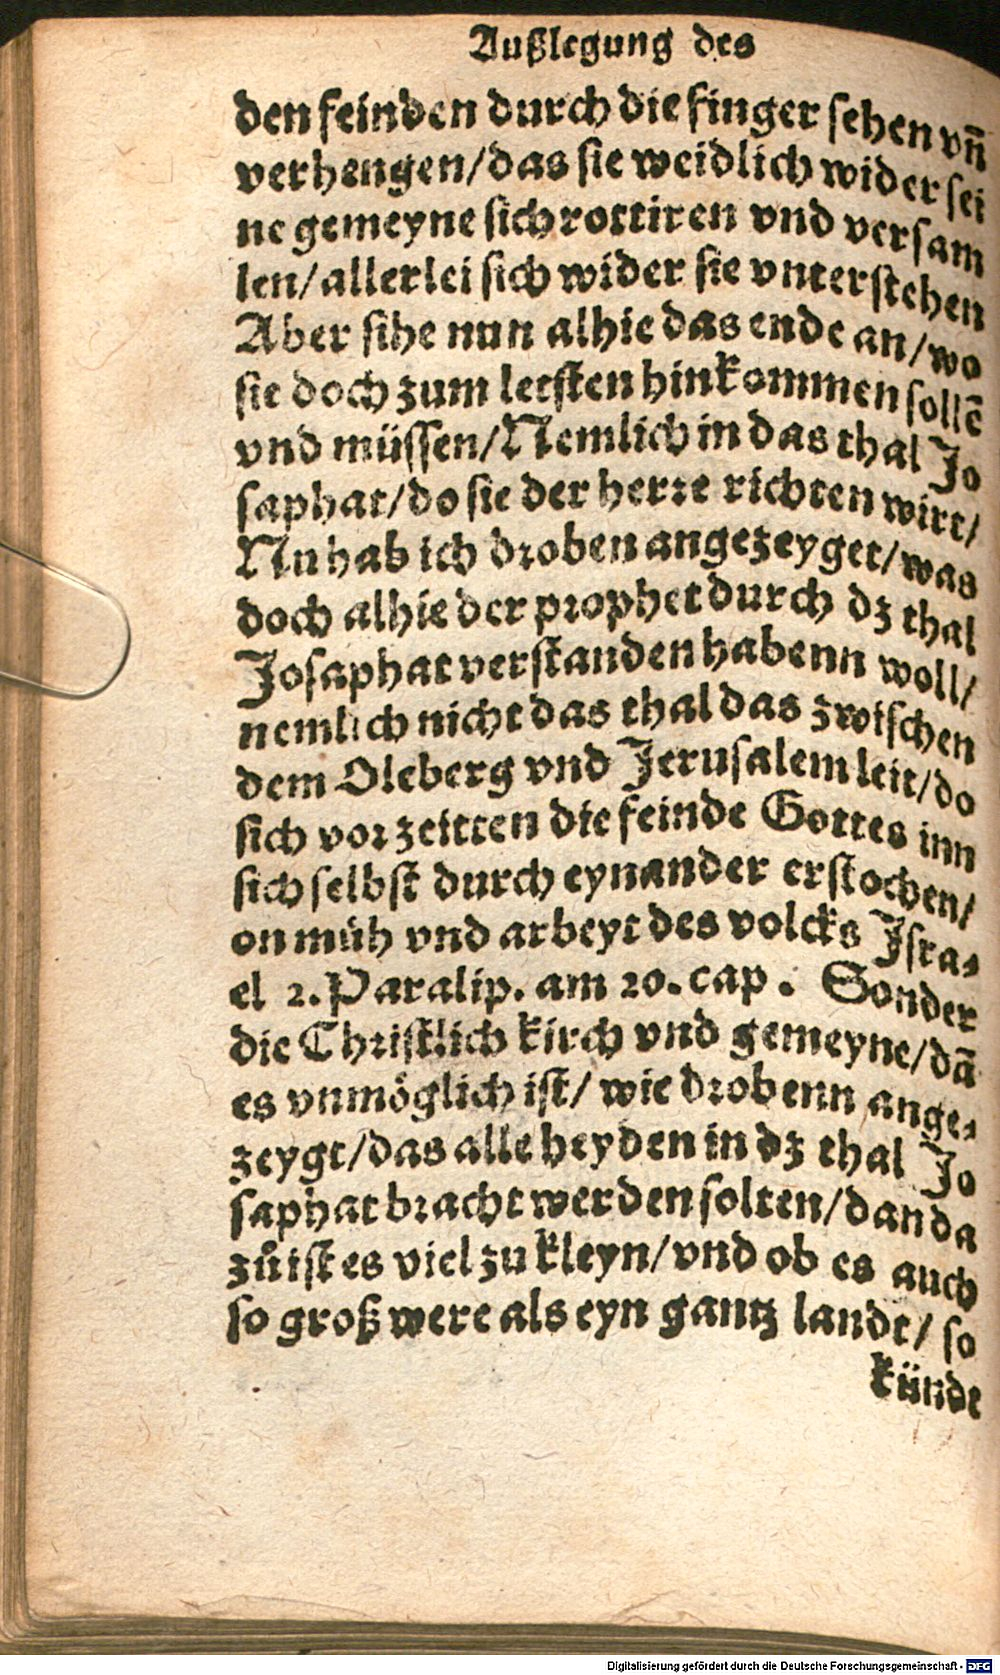 Außlegung des
den feinden durch die finger sehen vñ
verhengen/das sie weidlich wider sei
ne gemeyne sich rottiren vnd versam
len/allerlei sich wider sie vnterstehen
Aber sihe nun alhie das ende an/wo
sie doch zum letsten hinkommen sollē
vnd müssen/Nemlich in das thal Jo
saphat/do sie der herre richten wirt/
Nu hab ich droben angezeyget/was
doch alhie der prophet durch dz thal
Josaphat verstanden habenn woll/
nemlich nicht das thal das zwischen
dem Oleberg vnd Jerusalem leit/do
sich vor zeitten die feinde Gottes inn
sich selbst durch eynander erstochen/
on müh vnd arbeyt des volcks Jsra⸗
el 2. Paralip. am 20. cap. Sonder
die Christlich kirch vnd gemeyne/dā
es vnmöglich ist/ wie drobenn ange⸗
zeygt/das alle heyden in dz thal Jo
saphat bracht werden solten/dan da
zů ist es viel zu kleyn/vnd ob es auch
so groß were als eyn gantz landt/ so
künde
Digitalisierung gefördert durch die Deutsche Forschungsgemeinschaft - DFG